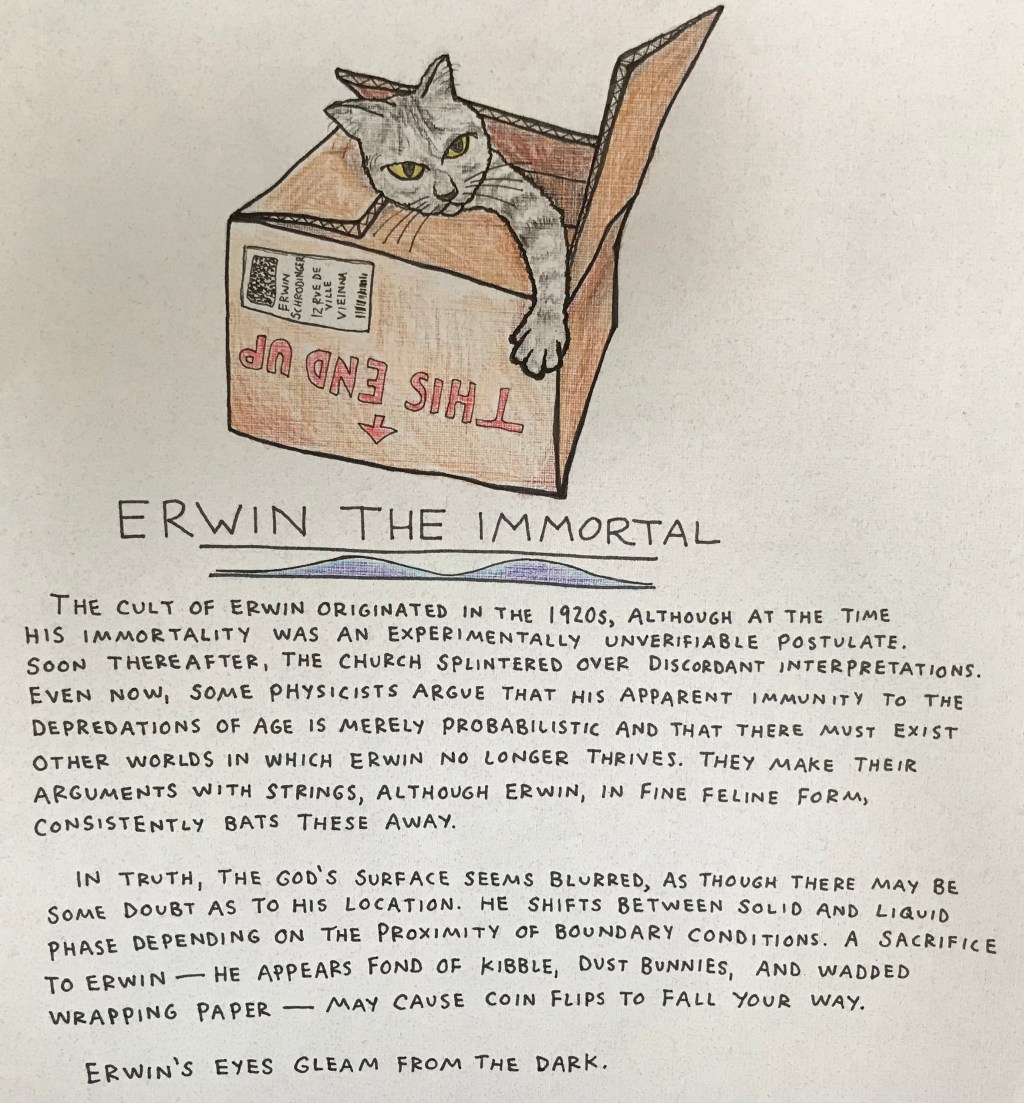 ERWIN
SCHRODINGER
12 RUE DE
VILLE
VIEINNA
THIS END UP
ERWIN THE IMMORTAL
THE CULT OF ERWIN ORIGINATED IN THE 1920S, ALTHOUGH AT THE TIME
HIS IMMORTALITY WAS AN EXPERIMENTALLY UNVERIFIABLE POSTULATE.
SOON THEREAFTER, THE CHURCH SPLINTERED OVER DISCORDANT INTERPRETATIONS.
EVEN NOW, SOME PHYSICISTS ARGUE THAT HIS APPARENT IMMUNITY TO THE
DEPREDATIONS OF AGE IS MERELY PROBABILISTIC AND THAT THERE MUST EXIST
OTHER WORLDS IN WHICH ERWIN NO LONGER THRIVES. THEY MAKE THEIR
ARGUMENTS WITH STRINGS, ALTHOUGH ERWIN, IN FINE FELINE FORM,
CONSISTENTLY BATS THESE AWAY.
IN TRUTH, THE GOD'S SURFACE SEEMS BLURRED, AS THOUGH THERE MAY BE
SOME DOUBT AS TO HIS LOCATION. HE SHIFTS BETWEEN SOLID AND LIQUID
PHASE DEPENDING ON THE PROXIMITY OF BOUNDARY CONDITIONS. A SACRIFICE
TO ERWIN — HE APPEARS FOND OF KIBBLE, DUST BUNNIES, AND WADDED
WRAPPING PAPER — MAY CAUSE COIN FLIPS TO FALL YOUR WAY.
ERWIN'S EYES GLEAM FROM THE DARK.